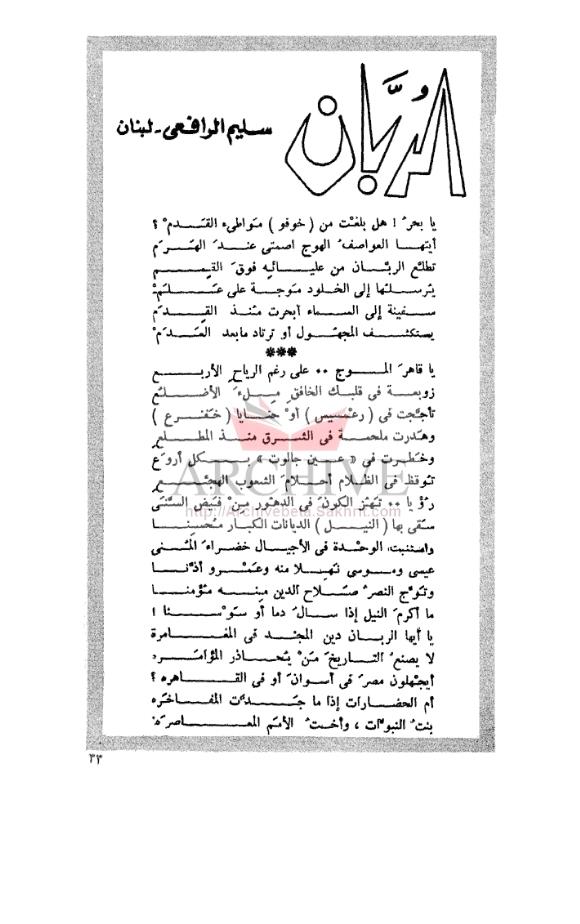 الرُّبَّان
سليم الرافعى - لبنان
يا بحرُ ! هل بلغت من ( خوفو ) مواطىء القدم ؟
أيتها العواصف الهوج اصمتى عند الهرم
تطلع الربان من عليائه فوق القمم
يرسلها إلى الخلود موجة على علم
سفينة إلى السماء أبحرت منذ القدم
يستكشف المجهول أو ترتاد مابعد العدم
***
يا قاهر الموج .. على رغم الرياح الأربع
زوبعة فى قلبك الخافق ملء الأضلع
تأججت فى ( رعمسيس ) أو حنايا ( خفرع )
وهدرت ملحمة فى الشرق منذ المطلع
وخطرت فى « عين جالوت » بكل أروع
توقظ فى الظلام أحلام الشعوب الهجع
رؤيا .. تهز الكون فى الدهور من فيض السنى
سقى بها ( النيل ) الديانات الكبار محسنا
واستنبت الوحدة فى الأجيال خضراء المنى
عيسى وموسى نهلا منه وعمرو أذنا
وتوج النصر صلاح الدين منه مؤمنا
ما أكرم النيل إذا سال دما أو سوسنا !
يا أيها الربان دين المجد فى المغامرة
لا يصنع التاريخ من يحاذر المؤامره
أيجهلون مصر فى أسوان أو فى القاهره ؟
أم الحضارات إذا ما جدت المفاخره
بنت النبوات ، وأخت الأمم المعاصرة
ARCHIVE
http://Archivebeta.Sakhrit.com
٣٣